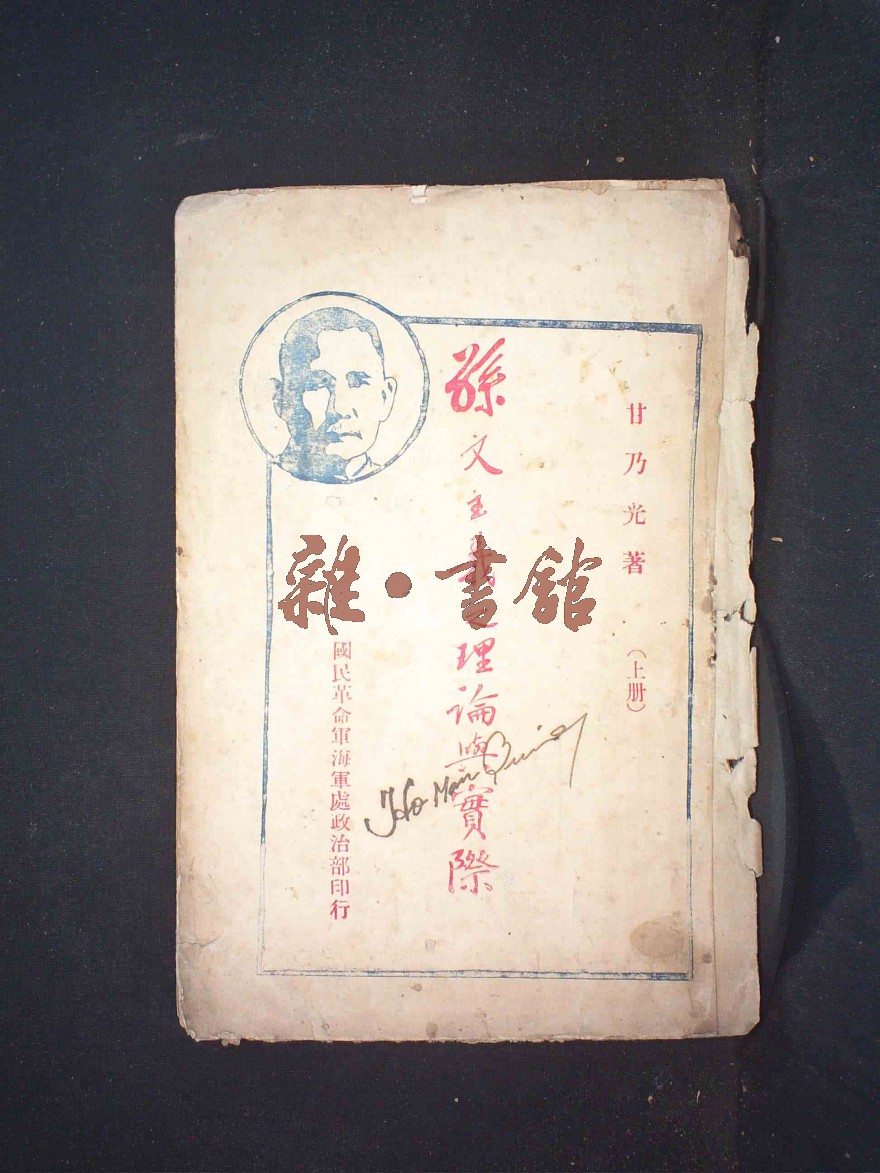 甘乃光著
（上册）
孫文主義之理論與實際
國民革命軍海軍處政治部印行
雜·書館
Ho Man